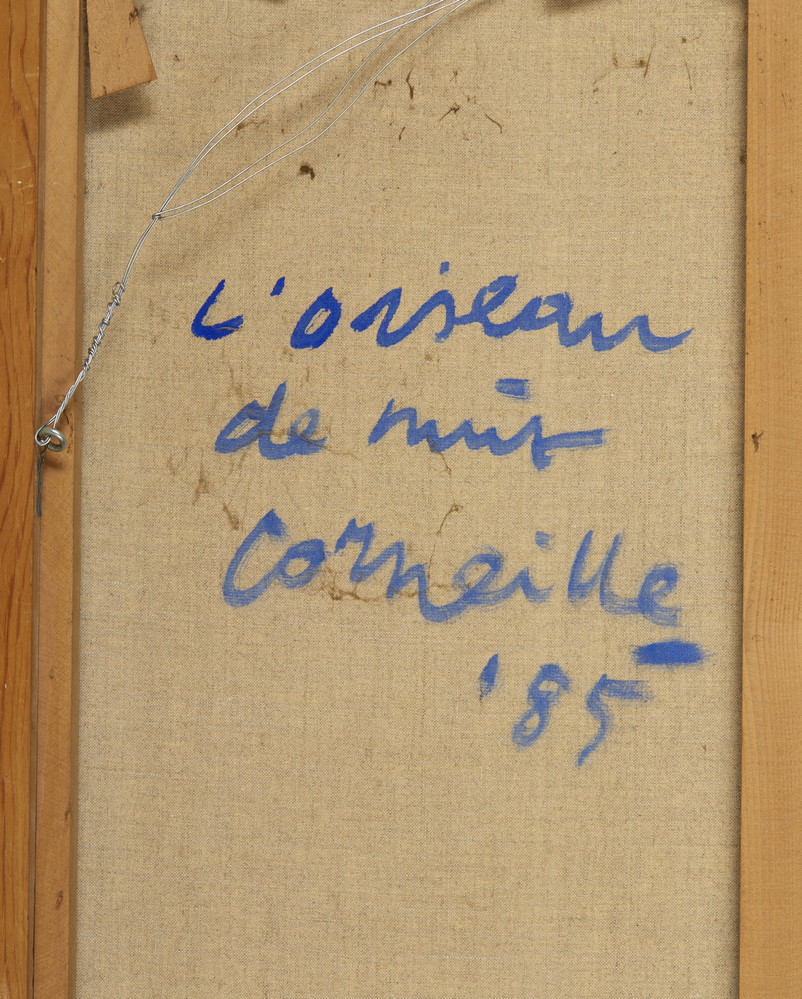 L'oiseau
de nuit
Corneille
'85